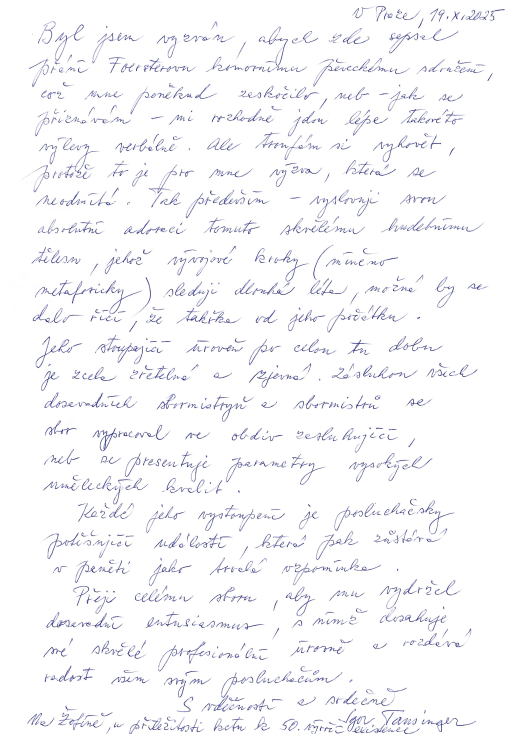 V Praze, 19.XI.2025
Byl jsem vyzván, abych zde sepsal
přání Foersterovu komornímu pěveckému sdružení,
což mne poněkud zaskočilo, neb – jak se
přiznávám – mi rozhodně jdou lépe takovéto
výlevy verbálně. Ale troufám si vyhovět,
protože to je pro mne výzva, která se
neodmítá. Tak především – vyslovuji svou
absolutní adoraci tomuto skvělému hudebnímu
tělesu, jehož vývojové kroky (míněno
metaforicky) sleduji dlouhá léta, možná by se
dalo říci, že takřka od jeho počátku.
Jeho stoupající úroveň po celou tu dobu
je zcela zřetelná a zjevná. Zásluhou všech
dosavadních sbormistryň a sbormistrů se
sbor vypracoval ve obdiv zasluhující,
neb se presentuje parametry vysokých
uměleckých kvalit.
Každé jeho vystoupení je posluchačsky
potěšující událostí, která pak zůstává
v paměti jako trvalá vzpomínka.
Přeji celému sboru, aby mu vydržel
dosavadní entusiasmus, s nímž dosahuje
své skvělé profesionální úrovně a rozdává
radost všem svým posluchačům.
S vděčností a srdečně
Igor Tausinger
Na Žofíně, u příležitosti ketu k 50. výročí existence